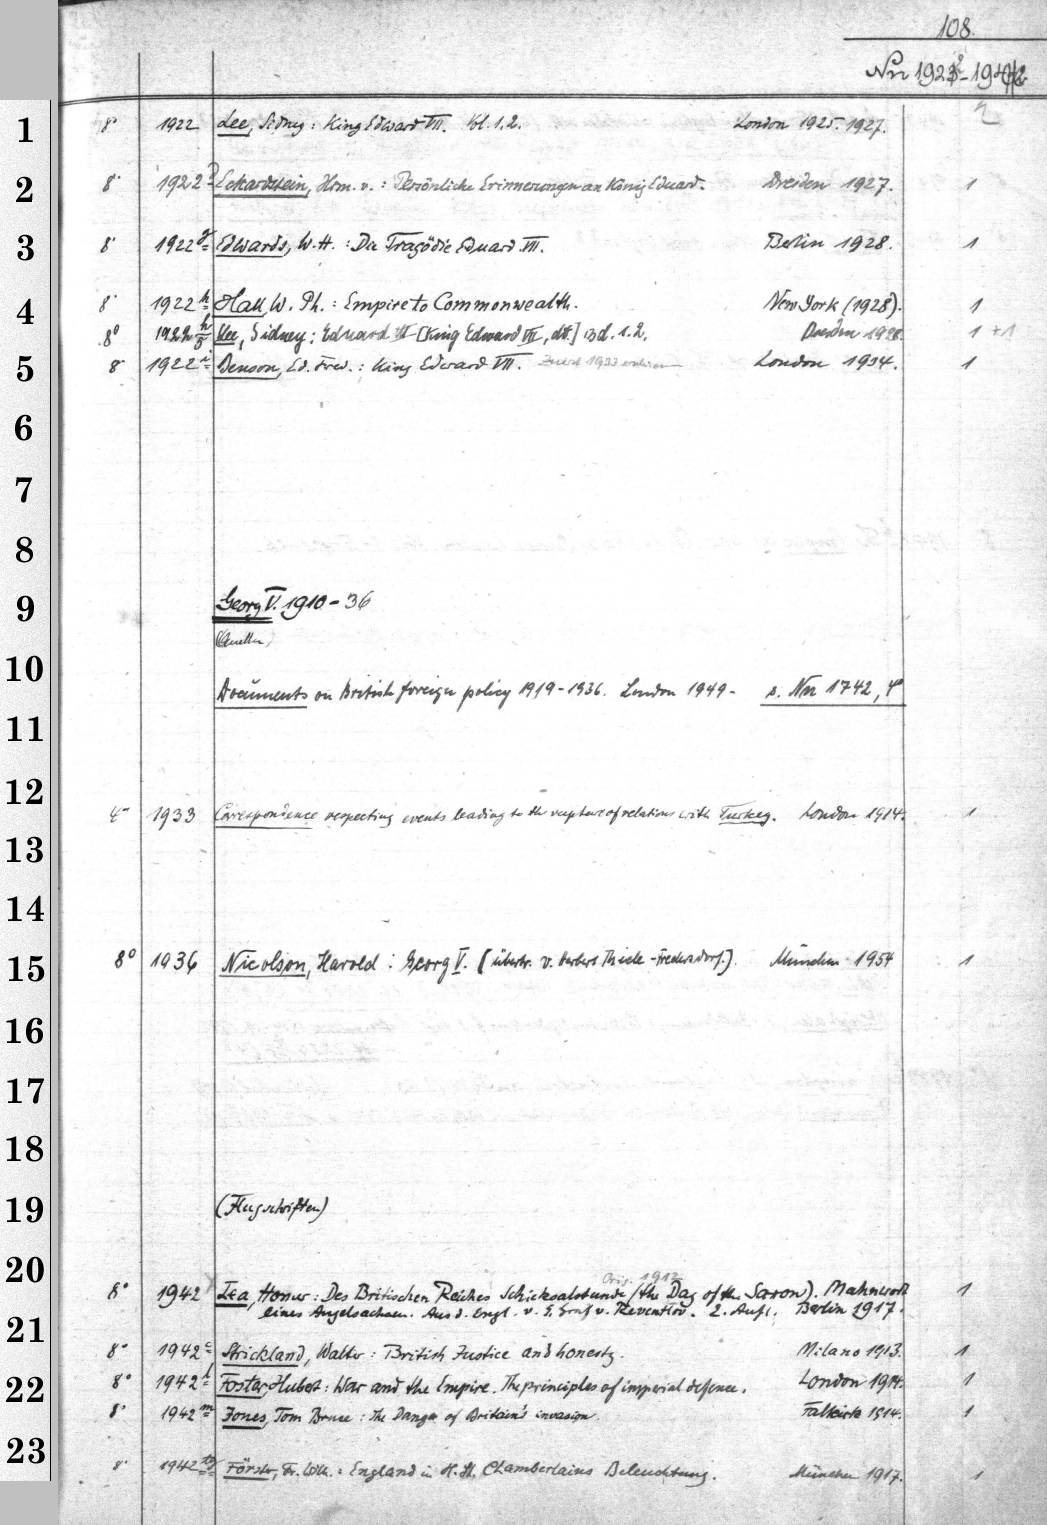 108.
Nn 1922-1942
1 8° 1922 Lee, Sidney: King Edward VII. Vol. 1.2. London 1925. 1927. 2
2 8° 1922 Eckardstein, Hrm. v.: Persönliche Erinnerungen an König Eduard. Dresden 1927. 1
3 8° 1922 g Edwards, W. H.: Die Tragödie Eduard VII. Berlin 1928. 1
4 8° 1922 h Hall, W. Ph.: Empire to Commonwealth. New York (1928). 1
8° 1922 Lee, Sidney: Eduard VII [King Edward VII, dt.] Bd. 1.2. Dresden 1928. 1 + 1
5 8° 1922 i Benson, Ed. Fred.: King Edward VII. Zuerst 1933 London 1934. 1
6
7
8
9 Georg V. 1910-36
(Quellen)
10
Documents on British foreign policy 1919-1936. London 1949- s. Nn 1742, 4°
11
12
4° 1933 Correspondence respecting events leading to the rupture of relations with Turkey. London 1914. 1
13
14
15 8° 1936 Nicolson, Harold: Georg V. [übertr. v. Herbert Thiele-Fredersdorf.]. München 1954 1
16
17
18
19 (Flugschriften)
20
Orig. 1912
8° 1942 Lea, Homer: Des Britischen Reiches Schicksalsstunde (the Day of the Saxon). Mahnwort 1
eines Angelsachsen. Aus d. Engl. v. E. Graf v. Reventlow. 2. Aufl. Berlin 1917.
21
8° 1942 c Strickland, Walter: British Justice and honesty. Milano 1913. 1
22 8° 1942 l Foster, Hubert: War and the Empire. The principles of imperial defence. London 1914. 1
8° 1942 m Jones, Tom Bruce: The Danger of Britain's invasion. Falkirk 1914. 1
23
8° 1942 Förster, Fr. Wilh.: England in H. St. Chamberlains Beleuchtung. München 1917. 1